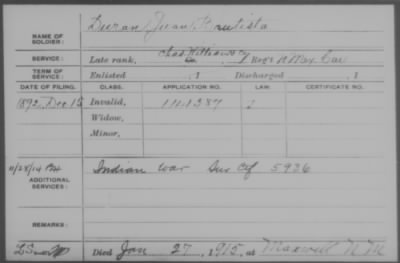 NAME OF SOLDIER: Duran, Juan Bautista
SERVICE: Late rank, Chas. Williams Co. , Reg't N Mex. Cav
TERM OF SERVICE: Enlisted , 1 Discharged , 1
DATE OF FILING. CLASS. APPLICATION NO. LAW. CERTIFICATE NO.
1892 Dec 15 Invalid, 1141387
Widow,
Minor,
ADDITIONAL SERVICES: Indian War Sur Ctf 5936
REMARKS:
Died Jan 27, 1915, at Maxwell N M